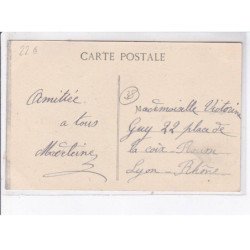 22 B
CARTE POSTALE
Amitiée
a tous
Madeleine
Mademoiselle Victorine
Guy 22 place de
la croix-Rousse
Lyon-Rhône